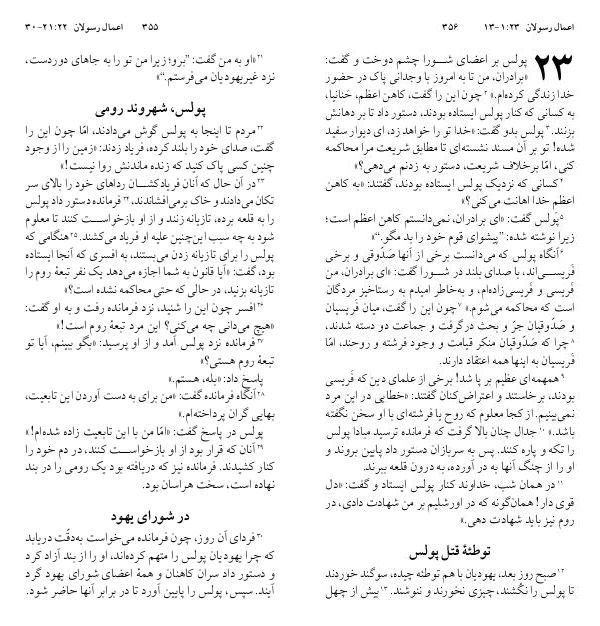 اعمال رسولان ۲۱:۲۲-۳۰
۳۵۵
۲۱«او به من گفت: ”برو؛ زیرا من تو را به جاهای دوردست،
نزد غیریهودیان می‌فرستم.“»
پولس، شهروند رومی
۲۲مردم تا اینجا به پولس گوش می‌دادند، امّا چون این را
گفت، صدای خود را بلند کرده، فریاد زدند: «زمین را از وجود
چنین کسی پاک کنید که زنده ماندنش روا نیست!»
۲۳در آن حال که آنان فریادکشان رداهای خود را بالای سر
تکان می‌دادند و خاک برمی‌افشاندند، ۲۴فرمانده دستور داد پولس
را به قلعه برده، تازیانه زنند و از او بازخواست کنند تا معلوم
شود به چه سبب این‌چنین علیه او فریاد می‌کشند. ۲۵هنگامی که
پولس را برای تازیانه زدن می‌بستند، به افسری که آنجا ایستاده
بود، گفت: «آیا قانون به شما اجازه می‌دهد یک نفر تبعۀ روم را
تازیانه بزنید، در حالی که حتی محاکمه نشده است؟»
۲۶افسر چون این را شنید، نزد فرمانده رفت و به او گفت:
«هیچ می‌دانی چه می‌کنی؟ این مرد تبعۀ روم است!»
۲۷فرمانده نزد پولس آمد و از او پرسید: «بگو ببینم، آیا تو
تبعۀ روم هستی؟»
پاسخ داد: «بله، هستم.»
۲۸آنگاه فرمانده گفت: «من برای به دست آوردن این تابعیت،
بهایی گران پرداخته‌ام.»
پولس در پاسخ گفت: «امّا من با این تابعیت زاده شده‌ام!»
۲۹آنان که قرار بود از او بازخواست کنند، در دم خود را
کنار کشیدند. فرمانده نیز که دریافته بود یک رومی را در بند
نهاده است، سخت هراسان بود.
در شورای یهود
۳۰فردای آن روز، چون فرمانده می‌خواست به‌دقّت دریابد
که چرا یهودیان پولس را متهم کرده‌اند، او را از بند آزاد کرد
و دستور داد سران کاهنان و همۀ اعضای شورای یهود گرد
آیند. سپس، پولس را پایین آورد تا در برابر آنها حاضر شود.
اعمال رسولان ۱:۲۳-۱۳
۳۵۶
۲۳ پولس بر اعضای شورا چشم دوخت و گفت:
«برادران، من تا به امروز با وجدانی پاک در حضور
خدا زندگی کرده‌ام.» ۲چون این را گفت، کاهن اعظم، حَنانیا،
به کسانی که کنار پولس ایستاده بودند، دستور داد تا بر دهانش
بزنند. ۳پولس بدو گفت: «خدا تو را خواهد زد، ای دیوار سفید
شده! تو بر آن مسند نشسته‌ای تا مطابق شریعت مرا محاکمه
کنی، امّا برخلاف شریعت، دستور به زدنم می‌دهی؟»
۴کسانی که نزدیک پولس ایستاده بودند، گفتند: «به کاهن
اعظم خدا اهانت می‌کنی؟»
۵پولس گفت: «ای برادران، نمی‌دانستم کاهن اعظم است؛
زیرا نوشته شده: ”پیشوای قوم خود را بد مگو.“»
۶آنگاه پولس که می‌دانست برخی از آنها صَدّوقی و برخی
فَریسی‌اند، با صدای بلند در شورا گفت: «ای برادران، من
فَریسی و فَریسی‌زاده‌ام، و به‌خاطر امیدم به رستاخیز مردگان
است که محاکمه می‌شوم.» ۷چون این را گفت، میان فَریسیان
و صَدّوقیان جرّ و بحث درگرفت و جماعت دو دسته شدند،
۸چرا که صَدّوقیان منکر قیامت و وجود فرشته و روحند، امّا
فَریسیان به اینها همه اعتقاد دارند.
۹همهمه‌ای عظیم بر پا شد! برخی از علمای دین که فَریسی
بودند، برخاستند و اعتراض‌کنان گفتند: «خطایی در این مرد
نمی‌بینیم. از کجا معلوم که روح یا فرشته‌ای با او سخن نگفته
باشد.» ۱۰جدال چنان بالا گرفت که فرمانده ترسید مبادا پولس
را تکه و پاره کنند. پس به سربازان دستور داد پایین بروند و
او را از چنگ آنها به در آورده، به درون قلعه ببرند.
۱۱در همان شب، خداوند کنار پولس ایستاد و گفت: «دل
قوی دار! همان‌گونه که در اورشلیم بر من شهادت دادی، در
روم نیز باید شهادت دهی.»
توطئۀ قتل پولس
۱۲صبح روز بعد، یهودیان با هم توطئه چیده، سوگند خوردند
تا پولس را نکُشند، چیزی نخورند و ننوشند. ۱۳بیش از چهل